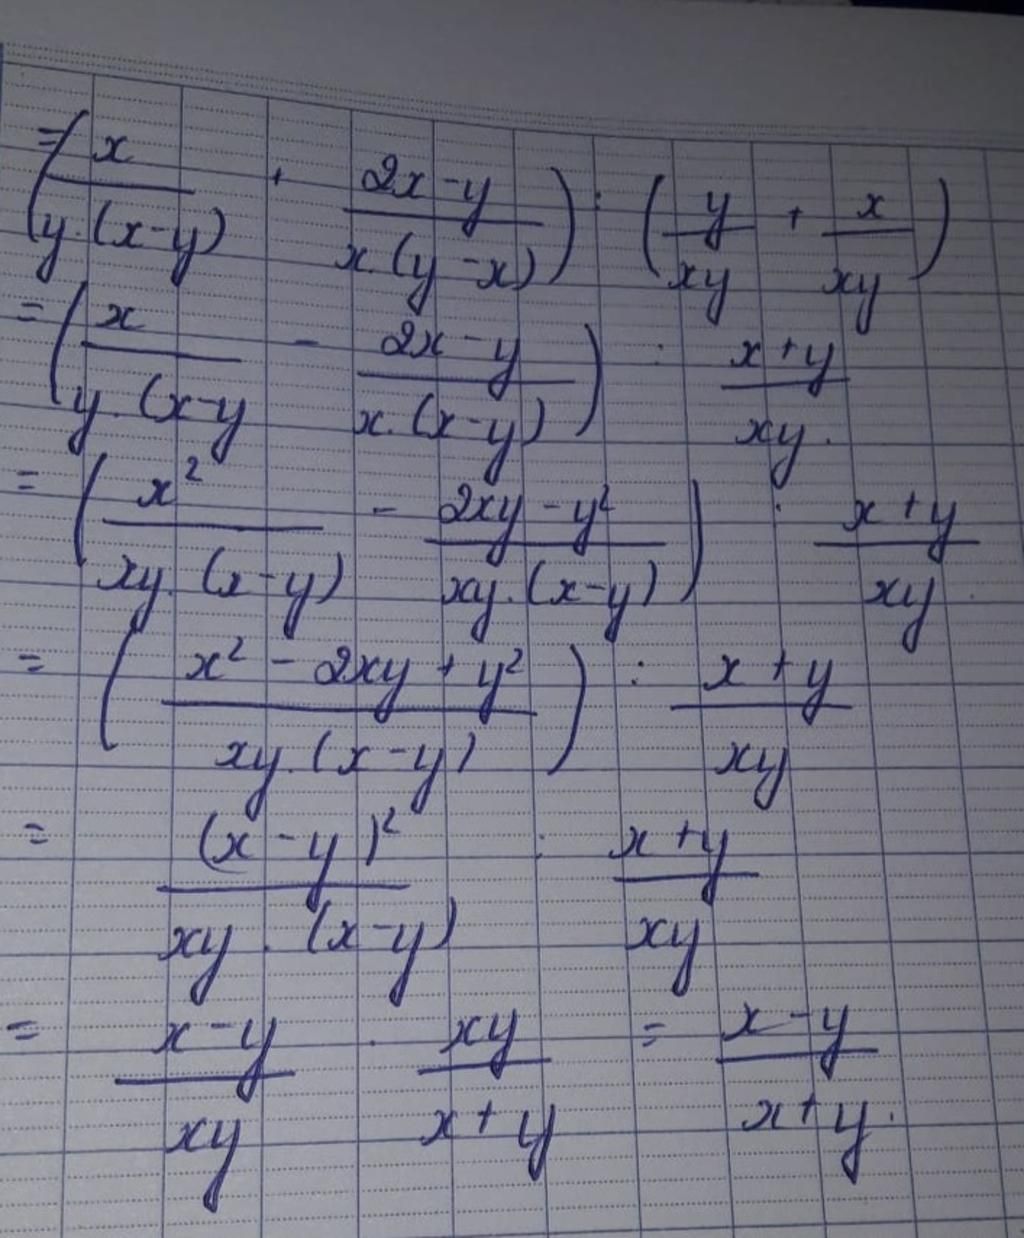 = (x / y.(x-y) + 2x-y / x.(y-x)) : (y / xy + x / xy)
= (x / y.(x-y - 2x-y / x.(x-y)) : x+y / xy.
= (x² / xy.(x-y) - 2xy-y² / xy.(x-y)) : x+y / xy.
= (x² - 2xy + y² / xy.(x-y)) : x+y / xy
= (x-y)² / xy.(x-y) : x+y / xy
= x-y / xy . xy / x+y = x-y / x+y.